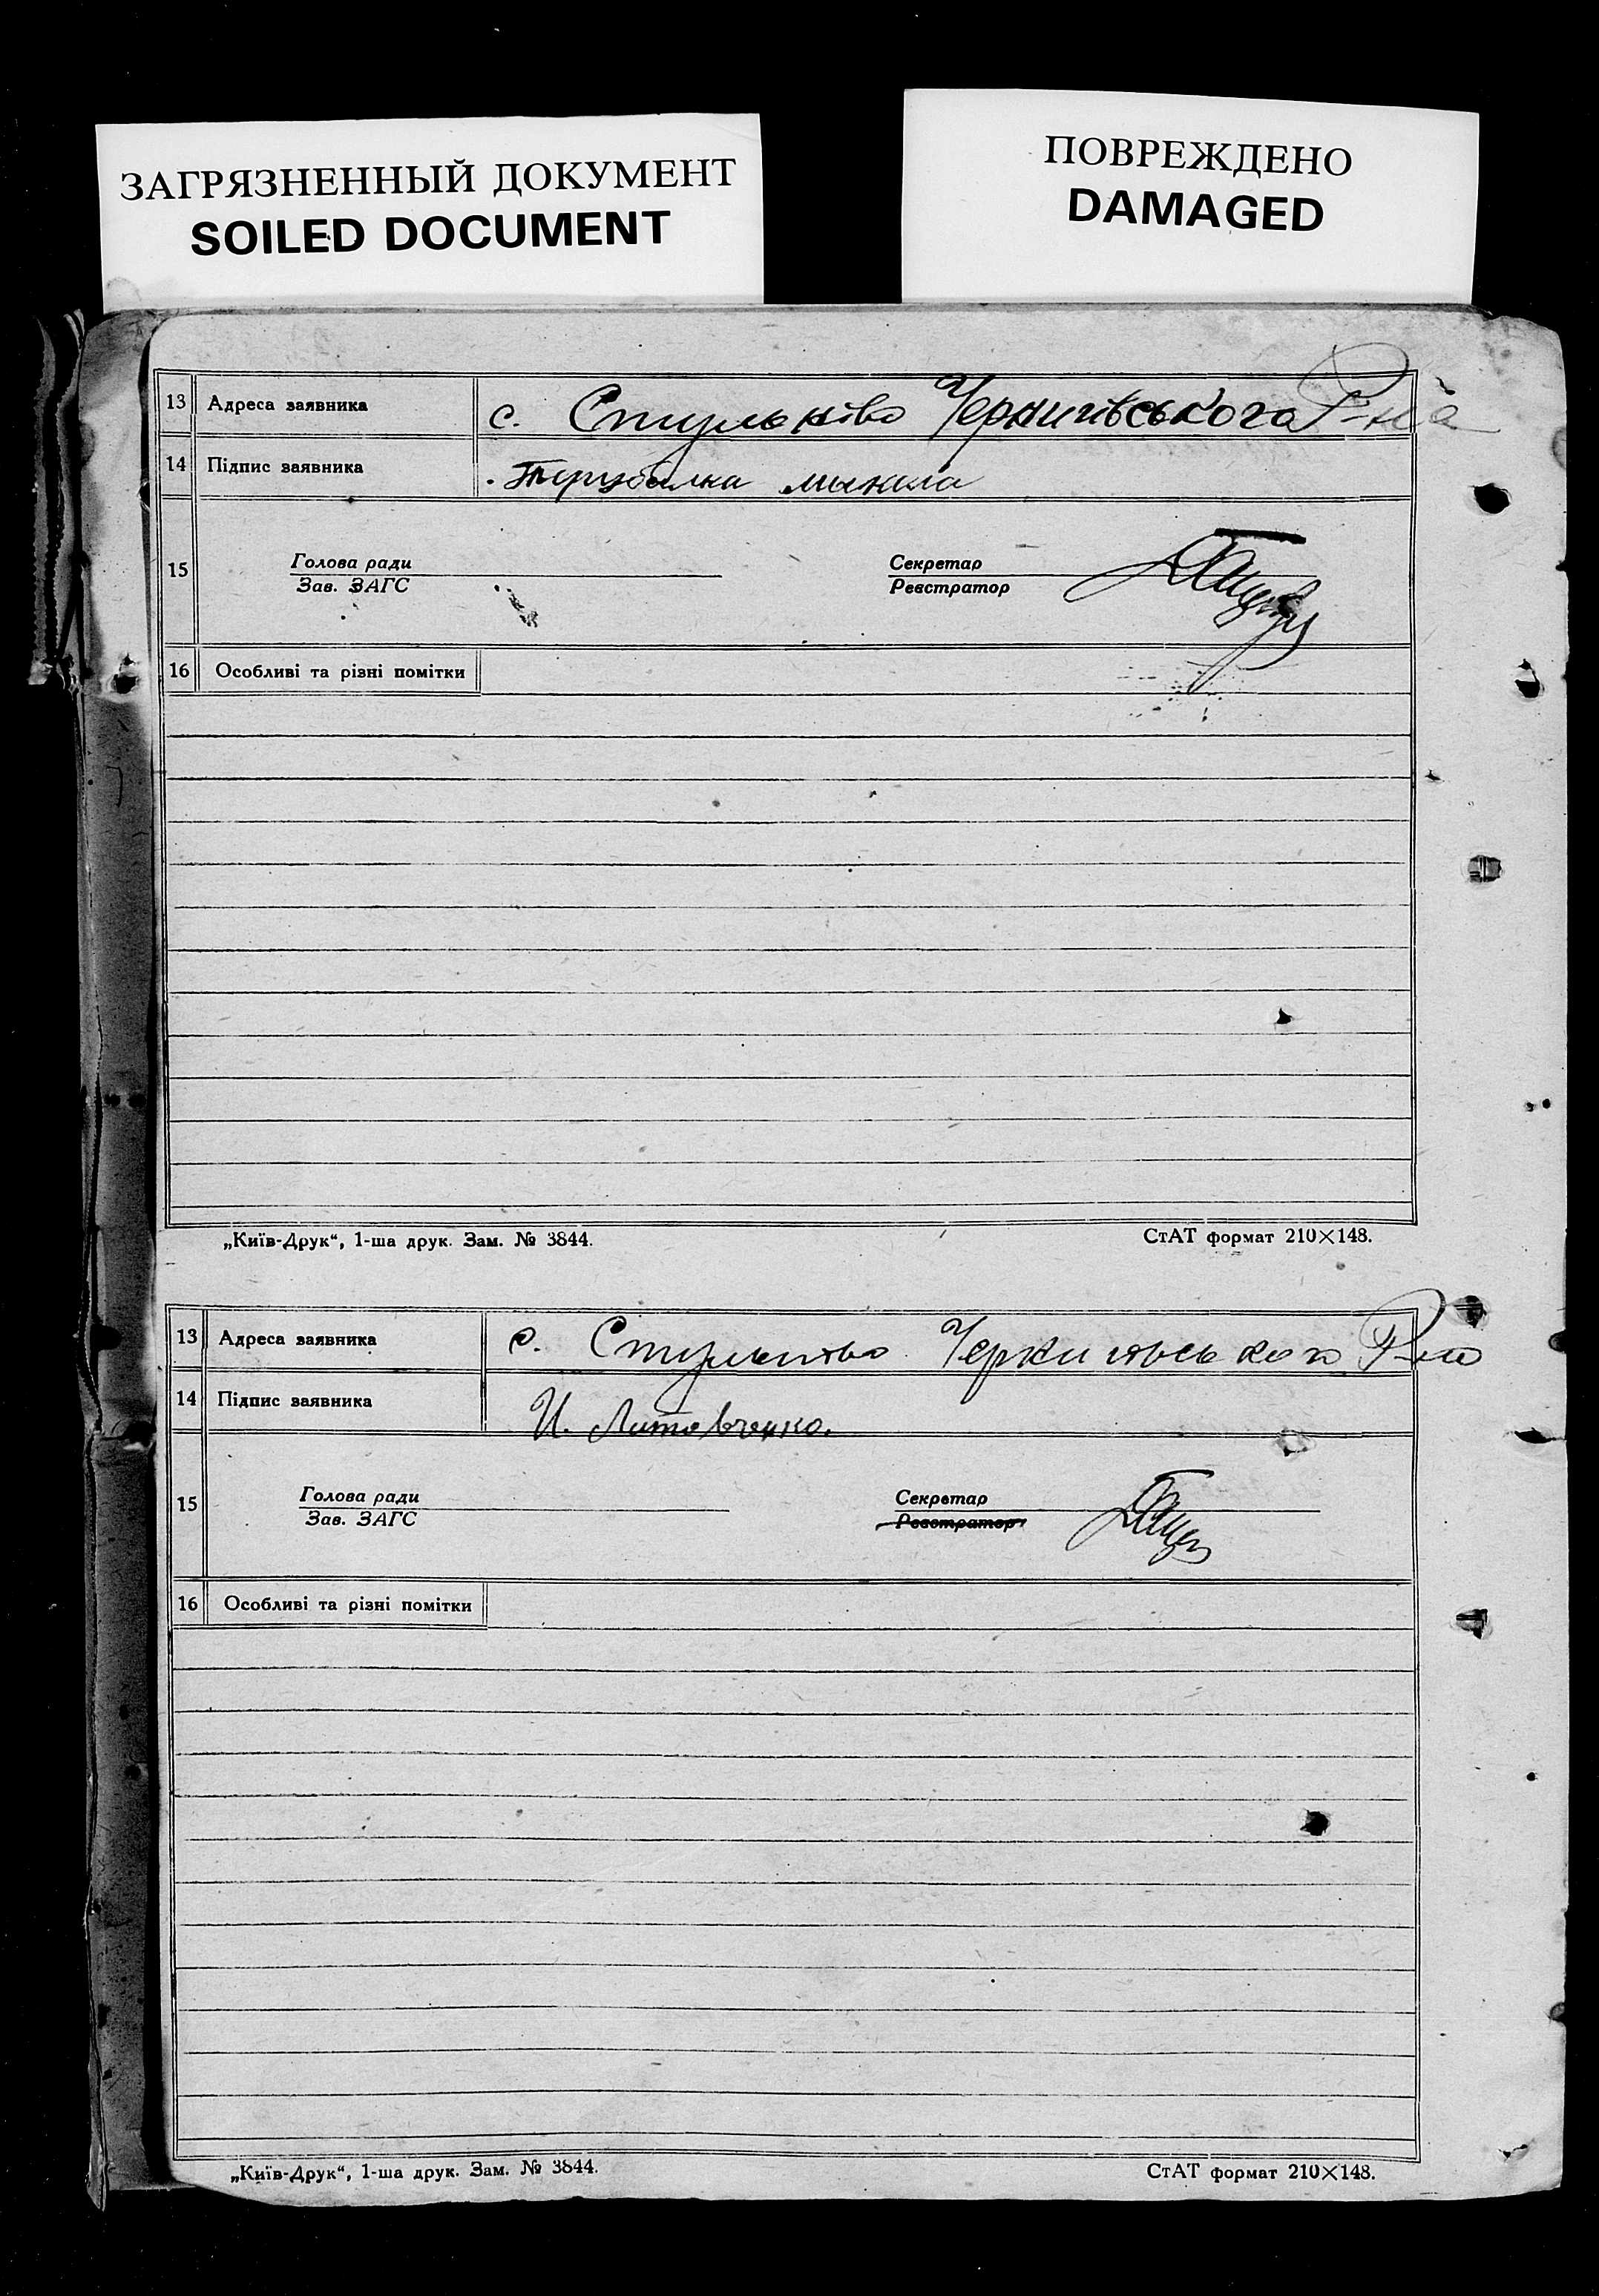 ЗАГРЯЗНЕННЫЙ ДОКУМЕНТ
SOILED DOCUMENT
ПОВРЕЖДЕНО
DAMAGED
13 Адреса заявника с. Стульнево Чернигівського Р-на
14 Підпис заявника микола
15 Голова ради Секретар
Зав. ЗАГС Реєстратор
16 Особливі та різні помітки
„Київ-Друк“, 1-ша друк. Зам. № 3844. СтАТ формат 210×148.
13 Адреса заявника с. Стульнево Чернигівського Р-на
14 Підпис заявника И. Литовченко.
15 Голова ради Секретар
Зав. ЗАГС Реєстратор
16 Особливі та різні помітки
„Київ-Друк“, 1-ша друк. Зам. № 3844. СтАТ формат 210×148.